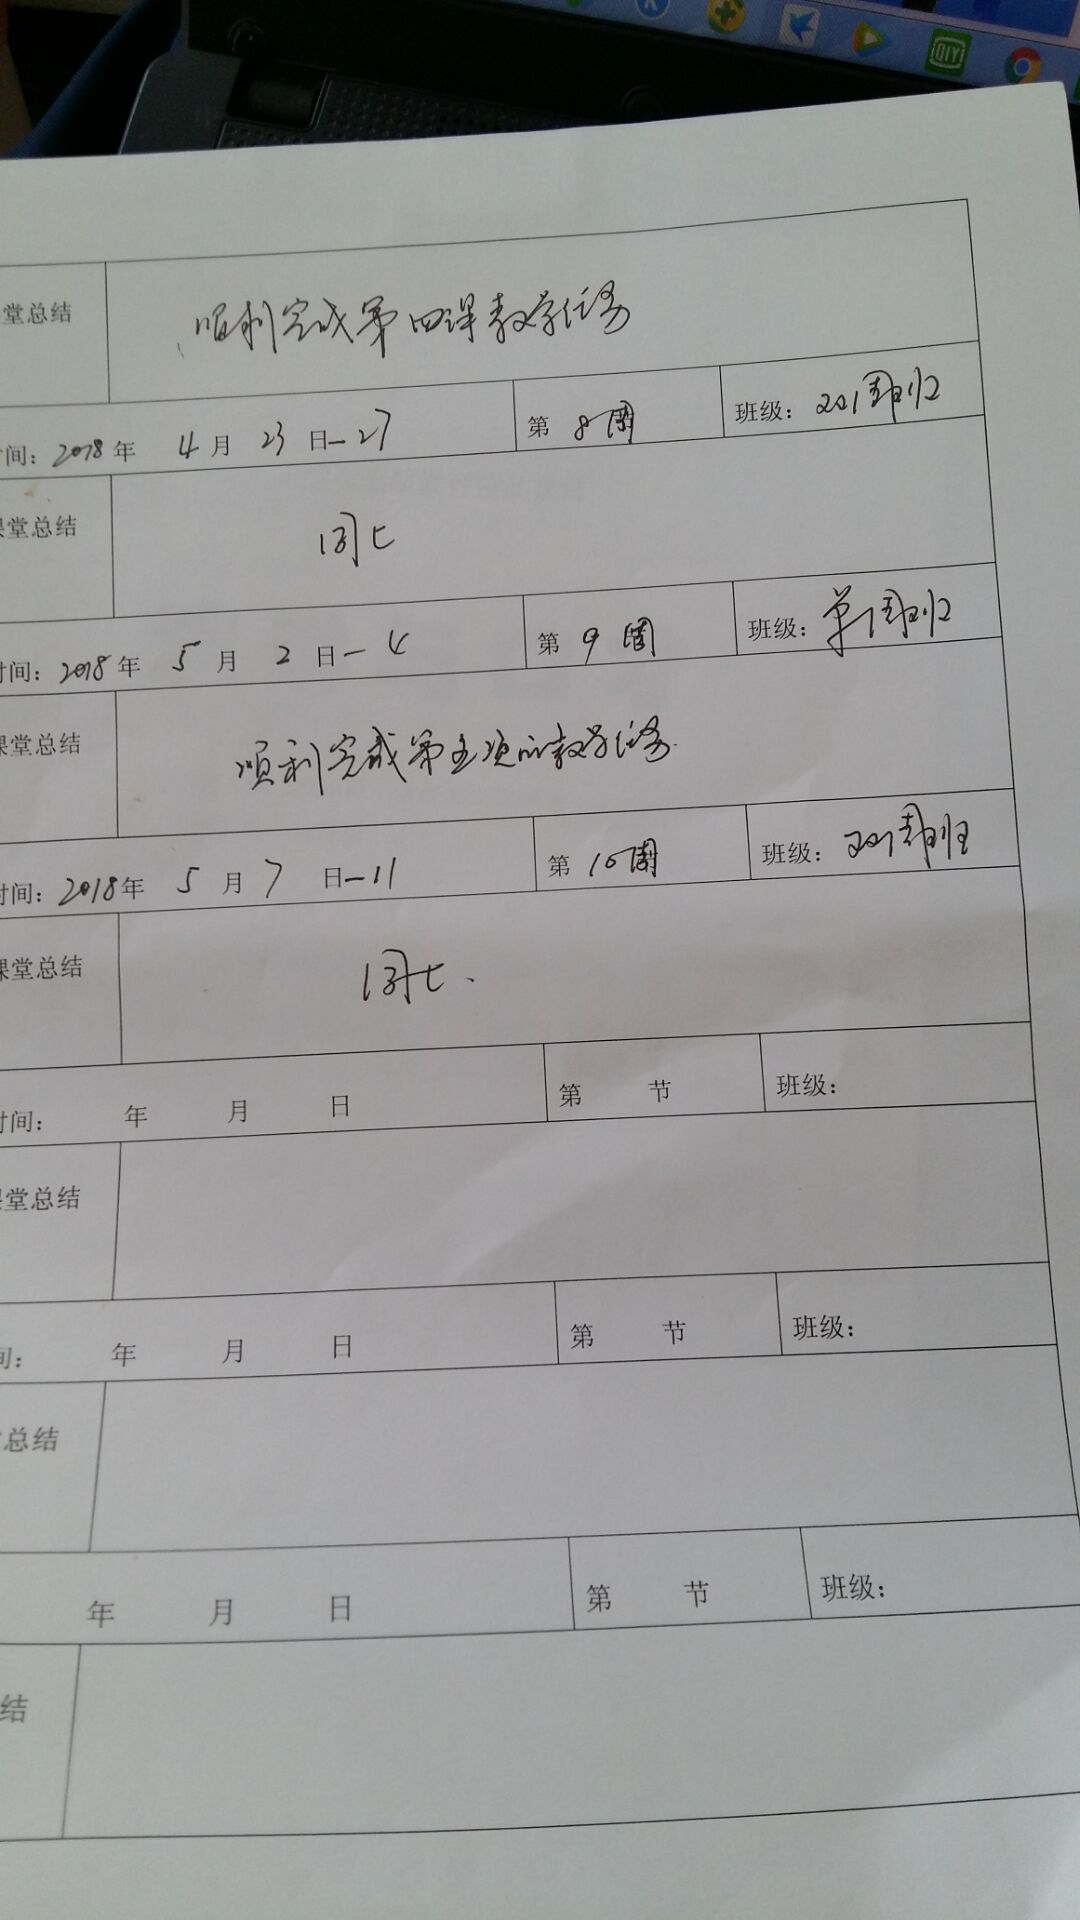 堂总结 顺利完成第四课教学任务
间：2018年 4月 23日—27 第 8周 班级：双周班
课堂总结 同上
时间：2018年 5月 2日—4 第 9周 班级：单周班
课堂总结 顺利完成第五项的教学任务.
时间：2018年 5月 7日—11 第 10周 班级：双周班
课堂总结 同上.
时间： 年 月 日 第 节 班级：
课堂总结
间： 年 月 日 第 节 班级：
总结
年 月 日 第 节 班级：
结